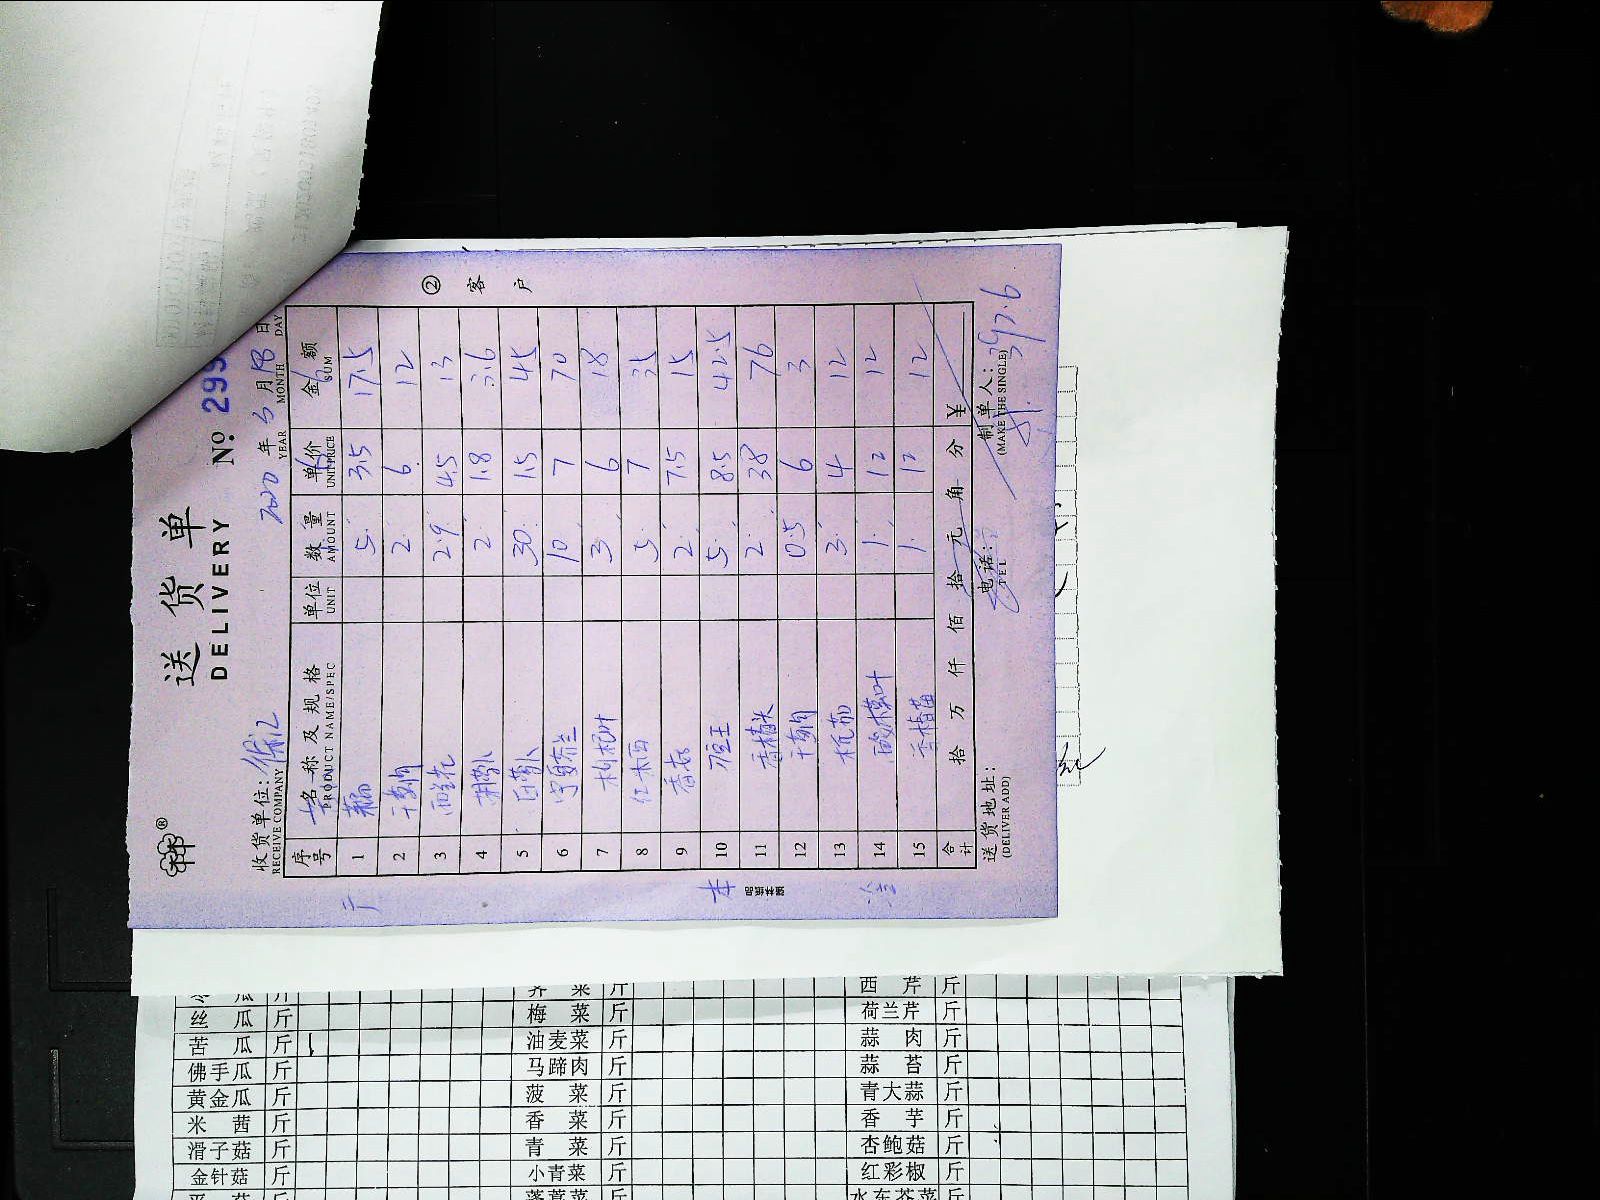 送货单
DELIVERY
No. 299
收货单位:
RECEIVE COMPANY
2020 年 5 月 18 日
YEAR MONTH DAY
序号 名称及规格 单位 数量 单价 金额
PRODUCT NAME/SPEC UNIT AMOUNT UNIT PRICE SUM
1 5 3.5 17.5
2 干葱肉 2 6 12
3 西兰花 2.9 4.5 13
4 2 1.8 3.6
5 白萝卜 30 1.5 45
6 宁夏菜兰 10 7 70
7 枸杞叶 3 6 18
8 红米西 5 7 35
9 2 7.5 15
10 豆王 5 8.5 42.5
11 香椿头 2 38 76
12 干葱肉 0.5 6 3
13 杭茄 3 4 12
14 酸菜叶 1 12 12
15 香椿苗 1 12 12
合计 拾 万 仟 佰 拾 元 角 分 ¥
397.6
送货地址:
(DELIVER ADD)
电话:
TEL
制单人:
(MAKE THE SINGLE)
② 客户
瓜 斤 荠 菜 斤 西 芹 斤
丝 瓜 斤 梅 菜 斤 荷兰芹 斤
苦 瓜 斤 油麦菜 斤 蒜 肉 斤
佛手瓜 斤 马蹄肉 斤 蒜 苔 斤
黄金瓜 斤 菠 菜 斤 青大蒜 斤
米 茜 斤 香 菜 斤 香 芋 斤
滑子菇 斤 青 菜 斤 杏鲍菇 斤
金针菇 斤 小青菜 斤 红彩椒 斤
平 菇 斤 蓬蒿菜 斤 水东芥菜 斤